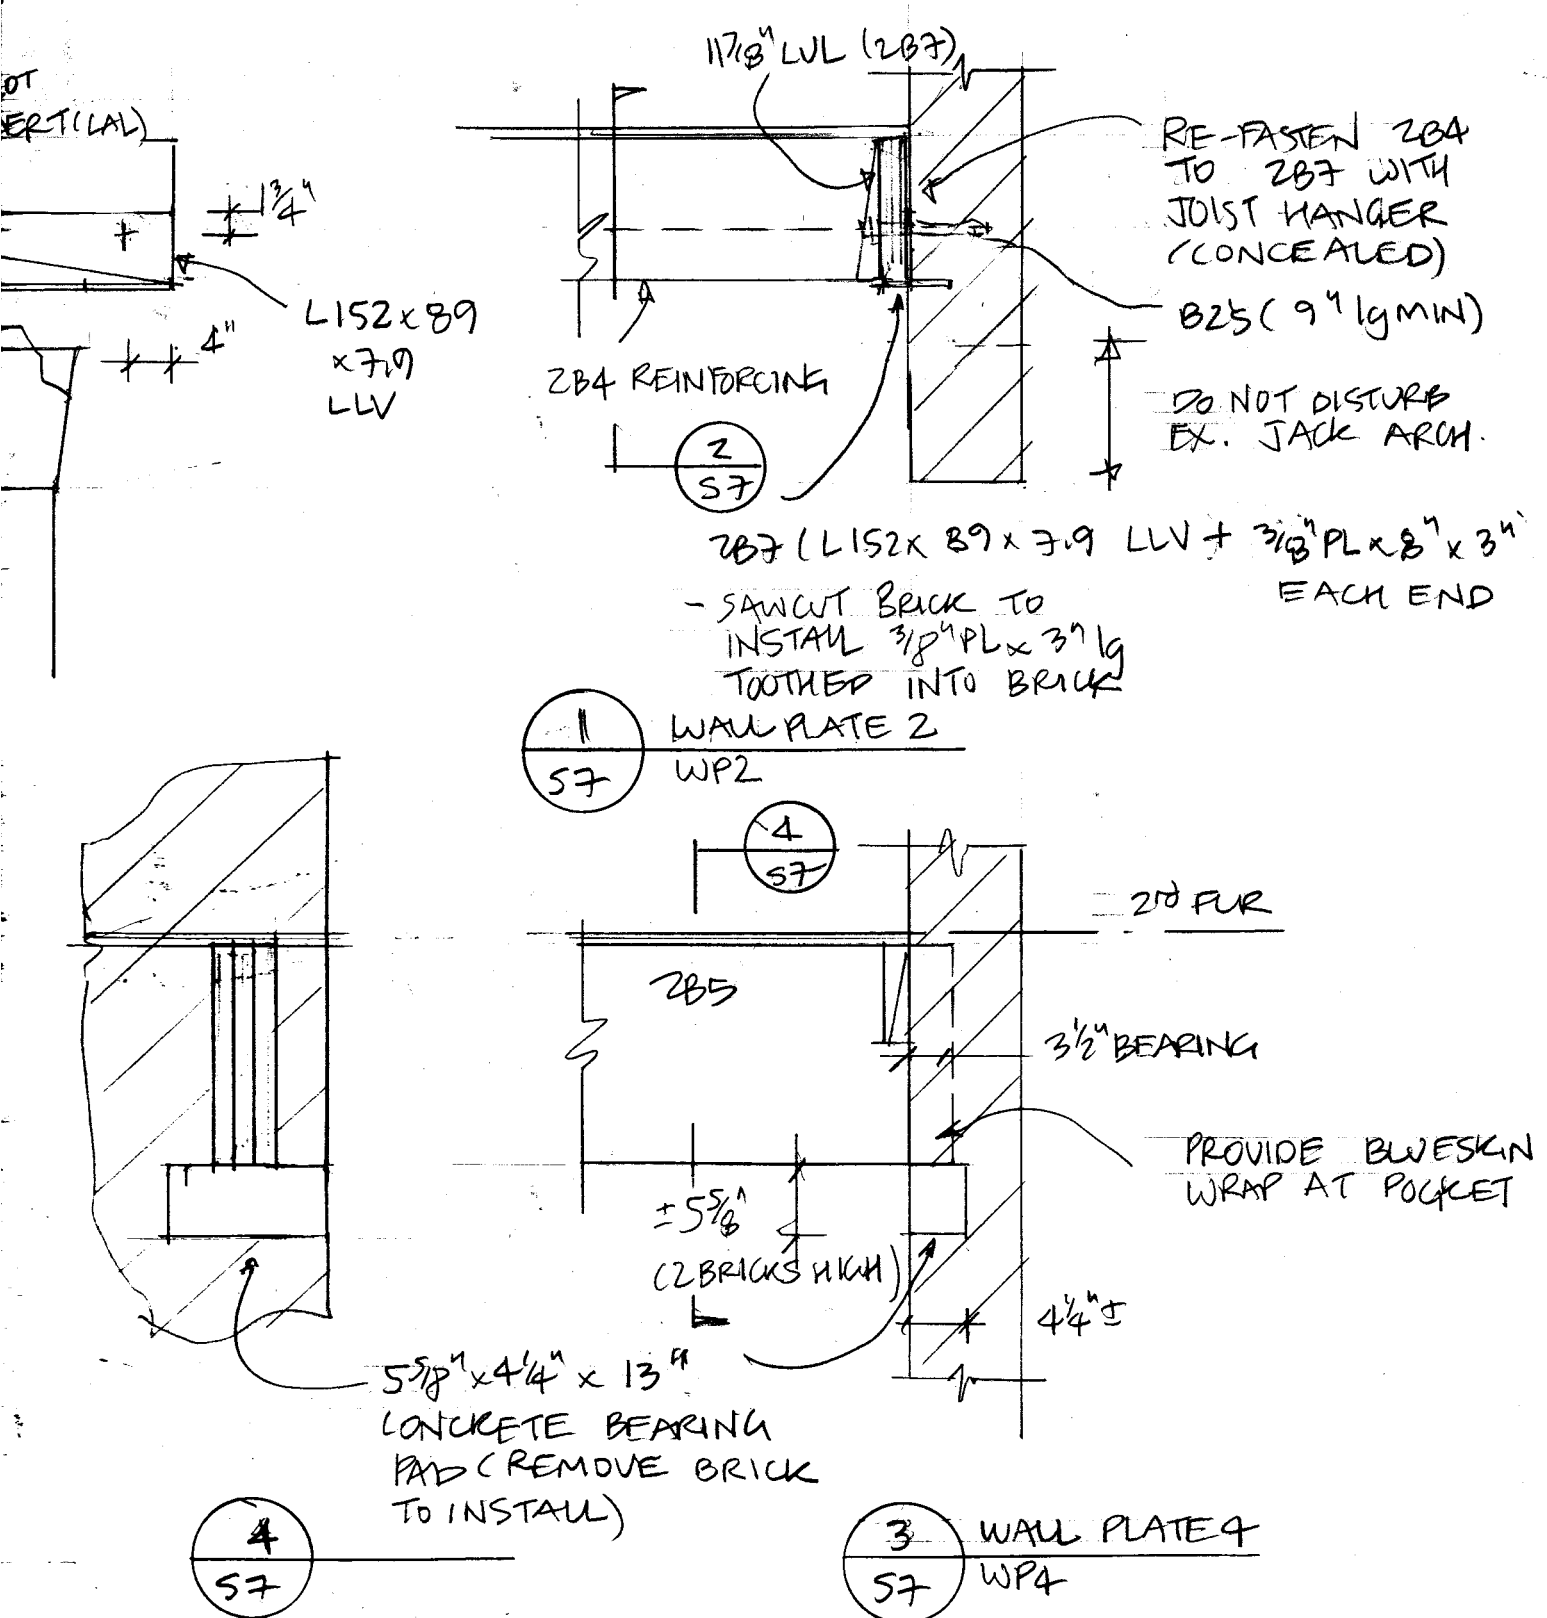 OT
ERTICAL)
1 3/4"
L152 x 89
x 7.9
LLV
4"
11 7/8" LVL (2B7)
RE-FASTEN 2B4
TO 2B7 WITH
JOIST HANGER
(CONCEALED)
B25 (9" lg MIN)
2B4 REINFORCING
DO NOT DISTURB
EX. JACK ARCH.
2
S7
2B7 (L152 x 89 x 7.9 LLV + 3/8" PL x 8" x 3"
EACH END
- SAWCUT BRICK TO
INSTALL 3/8" PL x 3" lg
TOOTHED INTO BRICK
1
S7
WALL PLATE 2
WP2
4
S7
2nd FLR
2B5
3 1/2" BEARING
PROVIDE BLUESKIN
WRAP AT POCKET
± 5 5/8"
(2 BRICKS HIGH)
4 1/4" ±
5 5/8" x 4 1/4" x 13"
CONCRETE BEARING
PAD (REMOVE BRICK
TO INSTALL)
4
S7
3
S7
WALL PLATE 4
WP4